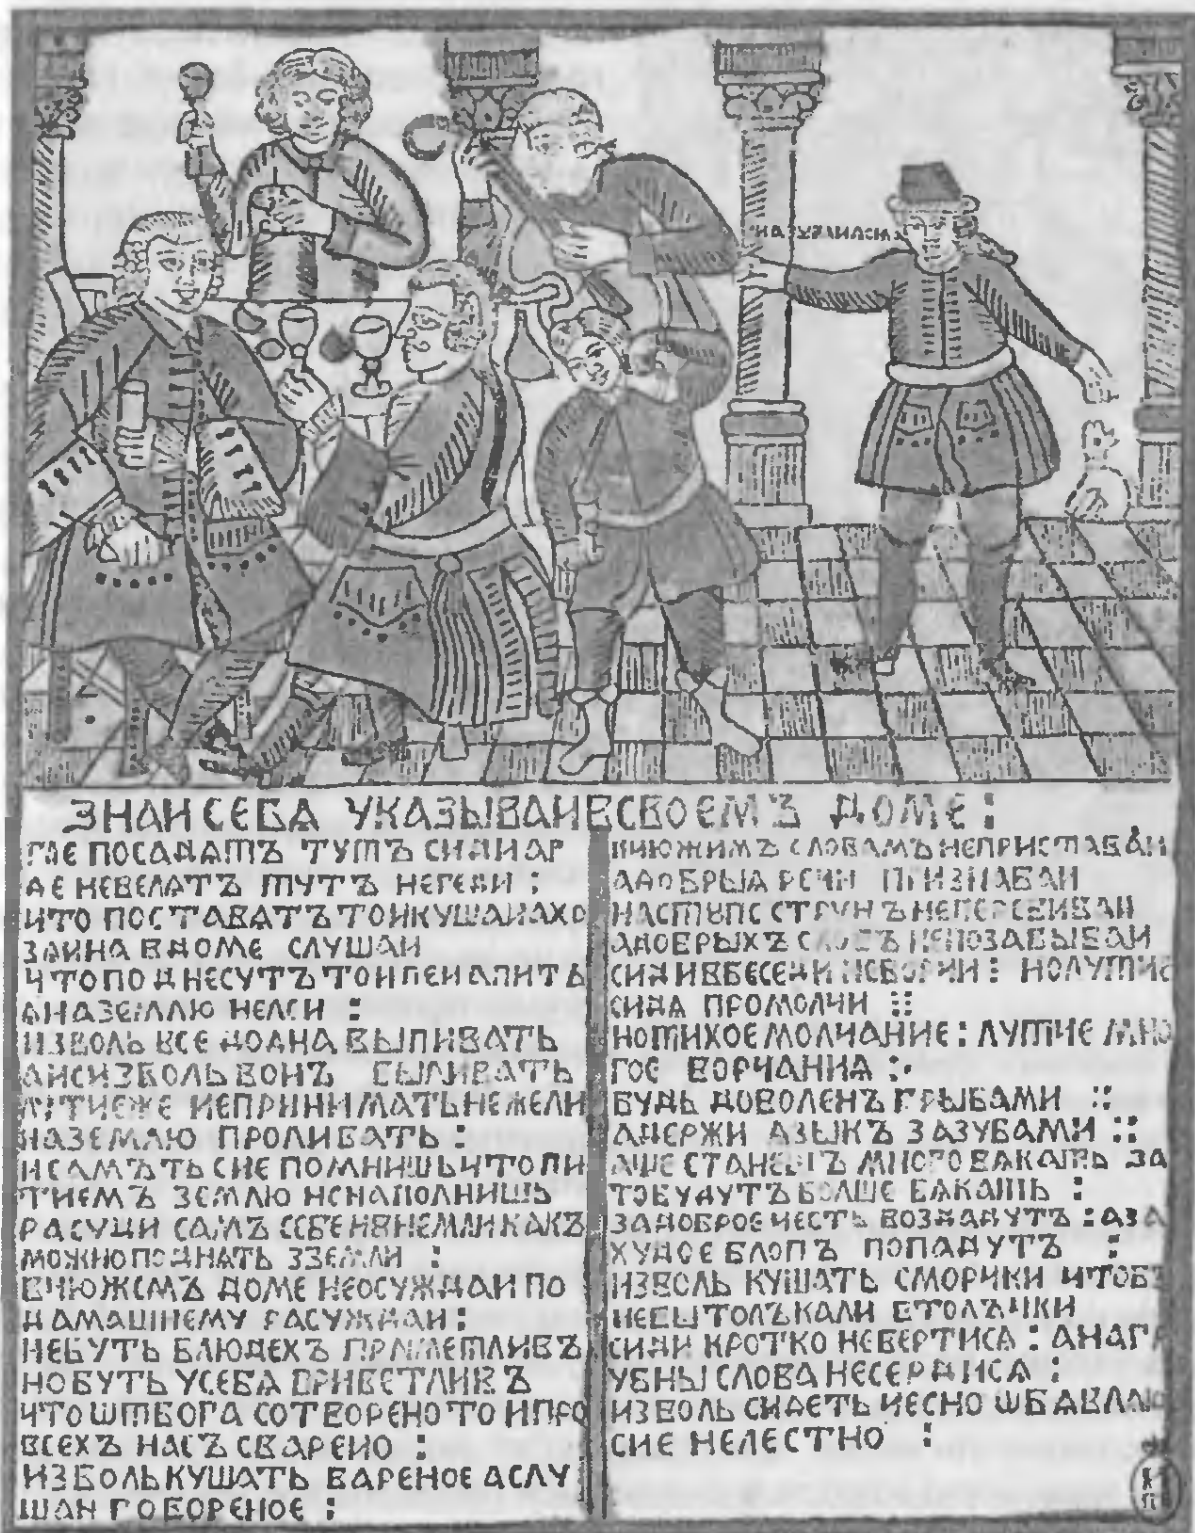 ЗНАИ СЕБЯ УКАЗЫВАИ ВСВОЕМЪ ДОМЕ :
ГДЕ ПОСАДЯТЪ ТУТЪ СИДИ АГ
ДЕ НЕВЕЛЯТЪ ТУТЪ НЕГЕДИ :
ЧТО ПОСТАВЯТЪ ТОИКУШАИАХО
ЗЯИНА ВДОМЕ СЛУШАИ
ЧТОПОДНЕСУТЪ ТОИПЕИ АПИТЬ
ЯНАЗЕМЛЮ НЕЛЕИ :
ИЗВОЛЬ ВСЕ ДОДНА ВЫПИВАТЬ
АНЕИЗВОЛЬ ВОНЪ ВЫЛИВАТЬ
ЛУТЧЕЖЕ НЕПРИНИМАТЬ НЕЖЕЛИ
НАЗЕМЛЮ ПРОЛИВАТЬ :
И САМЪ ТЫ СИЕ ПОМНИШЬ ЧТО ПИ
ТИЕМЪ ЗЕМЛЮ НЕНАПОЛНИШЬ
РАСУДИ САМЪ СЕБЕ ИВНЕМЛИ КАКЪ
МОЖНО ПОДНЯТЬ ЗЗЕМЛИ :
ВЧЮЖЕМЪ ДОМЕ НЕОСУЖДАИ ПО
ДАМАШНЕМУ РАСУЖДАИ :
НЕБУТЬ ВЛЮДЕХЪ ПРИМЕТЛИВЪ
НО БУТЬ УСЕБЯ ПРИВЕТЛИВЪ
ЧТО ѾБОГА СОТВОРЕНО ТО ИПРО
ВСЕХЪ НАСЪ СВАРЕНО :
ИЗВОЛЬ КУШАТЬ ВАРЕНОЕ АСЛУ
ШАИ ГОВОРЕНОЕ :
КЧЮЖИМЪ СЛОВАМЪ НЕПРИСТАВАИ
АДОБРЫЯ РЕЧИ ПРИЗНАВАИ
НАСТУПЕ СТРУНЪ НЕПЕРЕБИВАИ
АДОБРЫХЪ СЛОВЪ НЕПОЗАБЫВАИ
СИДИ ВБЕСЕДИ НЕВОРЧИ : НОЛУТЧЕ
СИДЯ ПРОМОЛЧИ ::
НОТИХОЕ МОЛЧАНИЕ : ЛУТЧЕ МНО
ГОЕ ВОРЧАНИЯ :
БУДЬ ДОВОЛЕНЪ ГРЫБАМИ ::
АДЕРЖИ ЯЗЫКЪ ЗАЗУБАМИ ::
АШЕ СТАНЕШЪ МНОГО ВЯКАТЬ ЗА
ТОБУДУТЪ БОЛШЕ ВЯКАТЬ :
ЗАДОБРОЕ ЧЕСТЬ ВОЗДАДУТЪ : АЗА
ХУДОЕ ВЛОПЪ ПОПАДУТЪ :
ИЗВОЛЬ КУШАТЬ СМОРЧКИ ЧТОБЪ
НЕВЫТОЛЪКАЛИ ВТОЛЪЧКИ
СИДИ КРОТКО НЕВЕРТИСЯ : АНАГР
УБНЫ СЛОВА НЕСЕРДИСЯ :
ИЗВОЛЬ СИДЕТЬ ЧЕСНО ѾБЯВЛЯЮ
СИЕ НЕЛЕСТНО :